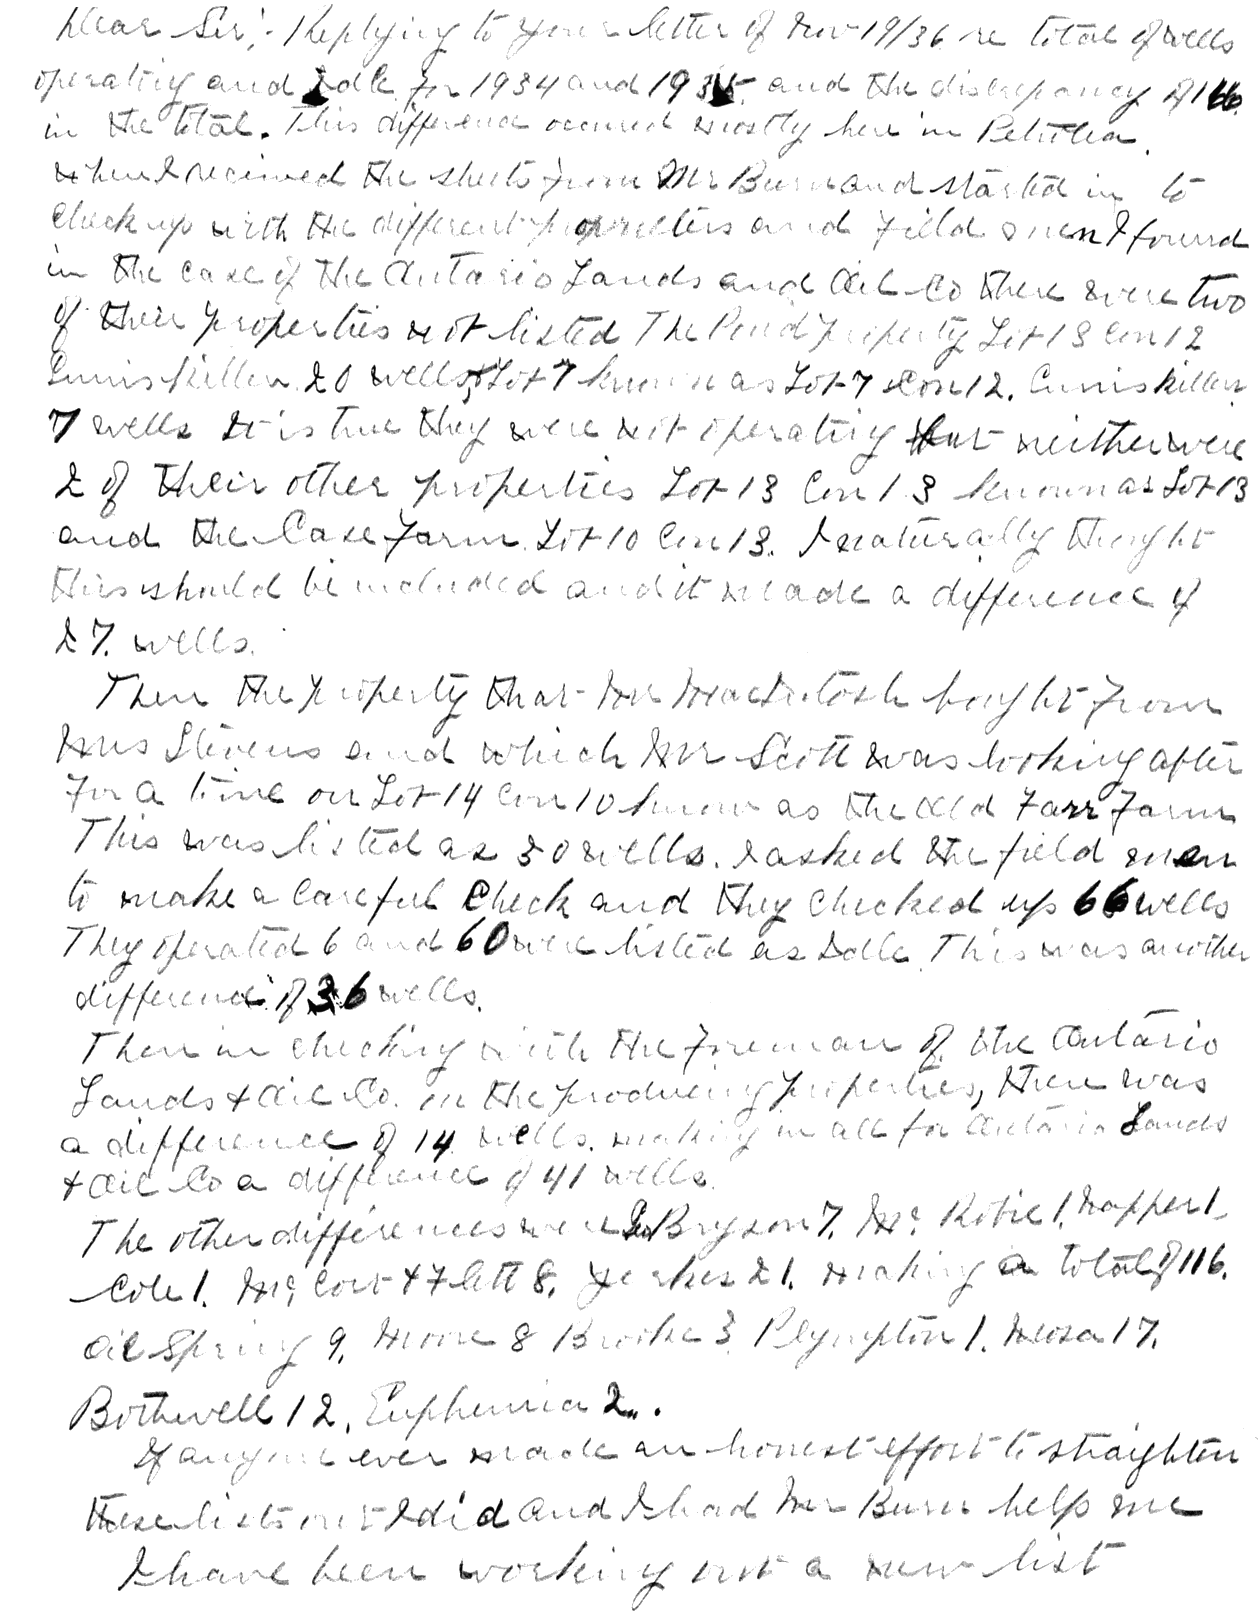 Dear Sir;- Replying to your letter of Nov 19/36 re total of wells
operating and Idle for 1934 and 1935 and the discrepancy of 116
in the total. This difference occured mostly here in Petrolea.
When I received the sheets from Mr Burn and started in to
check up with the different proprietors and field men I found
in the case of the Ontario Lands and Oil Co there were two
of their properties not listed The Pond property Lot 13 Con 12
Enniskillen 20 wells, Lot 7 known as Lot 7 Con 12. Enniskillen
7 wells It is true they were not operating but neither were
2 of their other properties Lot 13 Con 13 known as Lot 13
and the Case Farm Lot 10 Con 13. I naturally thought
this should be included and it made a difference of
27. wells.
Then the property that Mr MacIntosh bought from
Mrs Stevens and which Mr Scott was looking after
for a time on Lot 14 Con 10 know as the Old Farr Farm
This was listed as 30 wells. I asked the field men
to make a careful check and they checked up 66 wells
They operated 6 and 60 were listed as Idle. This was another
difference of 36 wells.
Then in checking with the Foreman of the Ontario
Lands & Oil Co. in the producing properties, there was
a difference of 14 wells. making in all for Ontario Lands
& Oil Co a difference of 41 wells.
The other differences were Geo Bryson 7. Mc Robie 1. Napper 1
Cole 1. Mc Cort & 8. 21. making a total of 116.
Oil Spring 9. Moore 8 Brooke 3 Plympton 1. Mosa 17.
Bothwell 12. Euphemia 2.
If anyone ever made an honest effort to straighten
these lists out I did and I had Mr Burn help me
I have been working out a new list